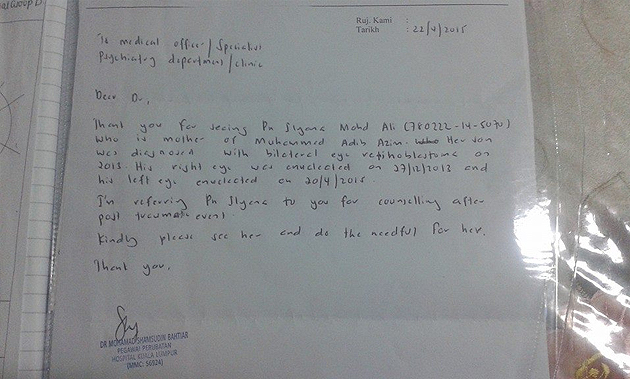 Ruj. Kami :
Tarikh : 22/4/2015
To medical officer / Specialist
Psychiatry department / clinic
Dear Dr,
Thank you for seeing Pn Ilyana Mohd Ali (780222-14-5070)
who is mother of Muhammad Adib Azim. Her son
was diagnosed with bilateral eye retinoblastoma on
2013. His right eye was enucleated on 27/12/2013 and
his left eye enucleated on 20/4/2015
I'm referring Pn Ilyana to you for counselling after
post traumatic event
Kindly please see her and do the needful for her.
Thank you.
DR MUHAMAD SHAMSUDIN BAHTIAR
PEGAWAI PERUBATAN
HOSPITAL KUALA LUMPUR
(MMC: 56924)